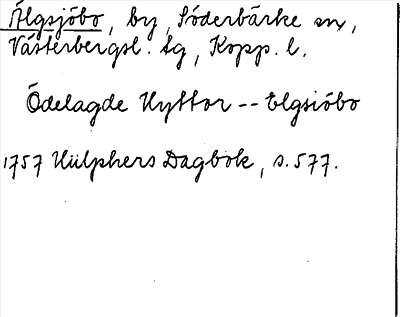 Älgsjöbo, by, Söderbärke sn,
Västerbergsl. tg, Kopp. l.
Ödelagde Hyttor -- Elgsiöbo
1757 Hülphers Dagbok, s. 577.